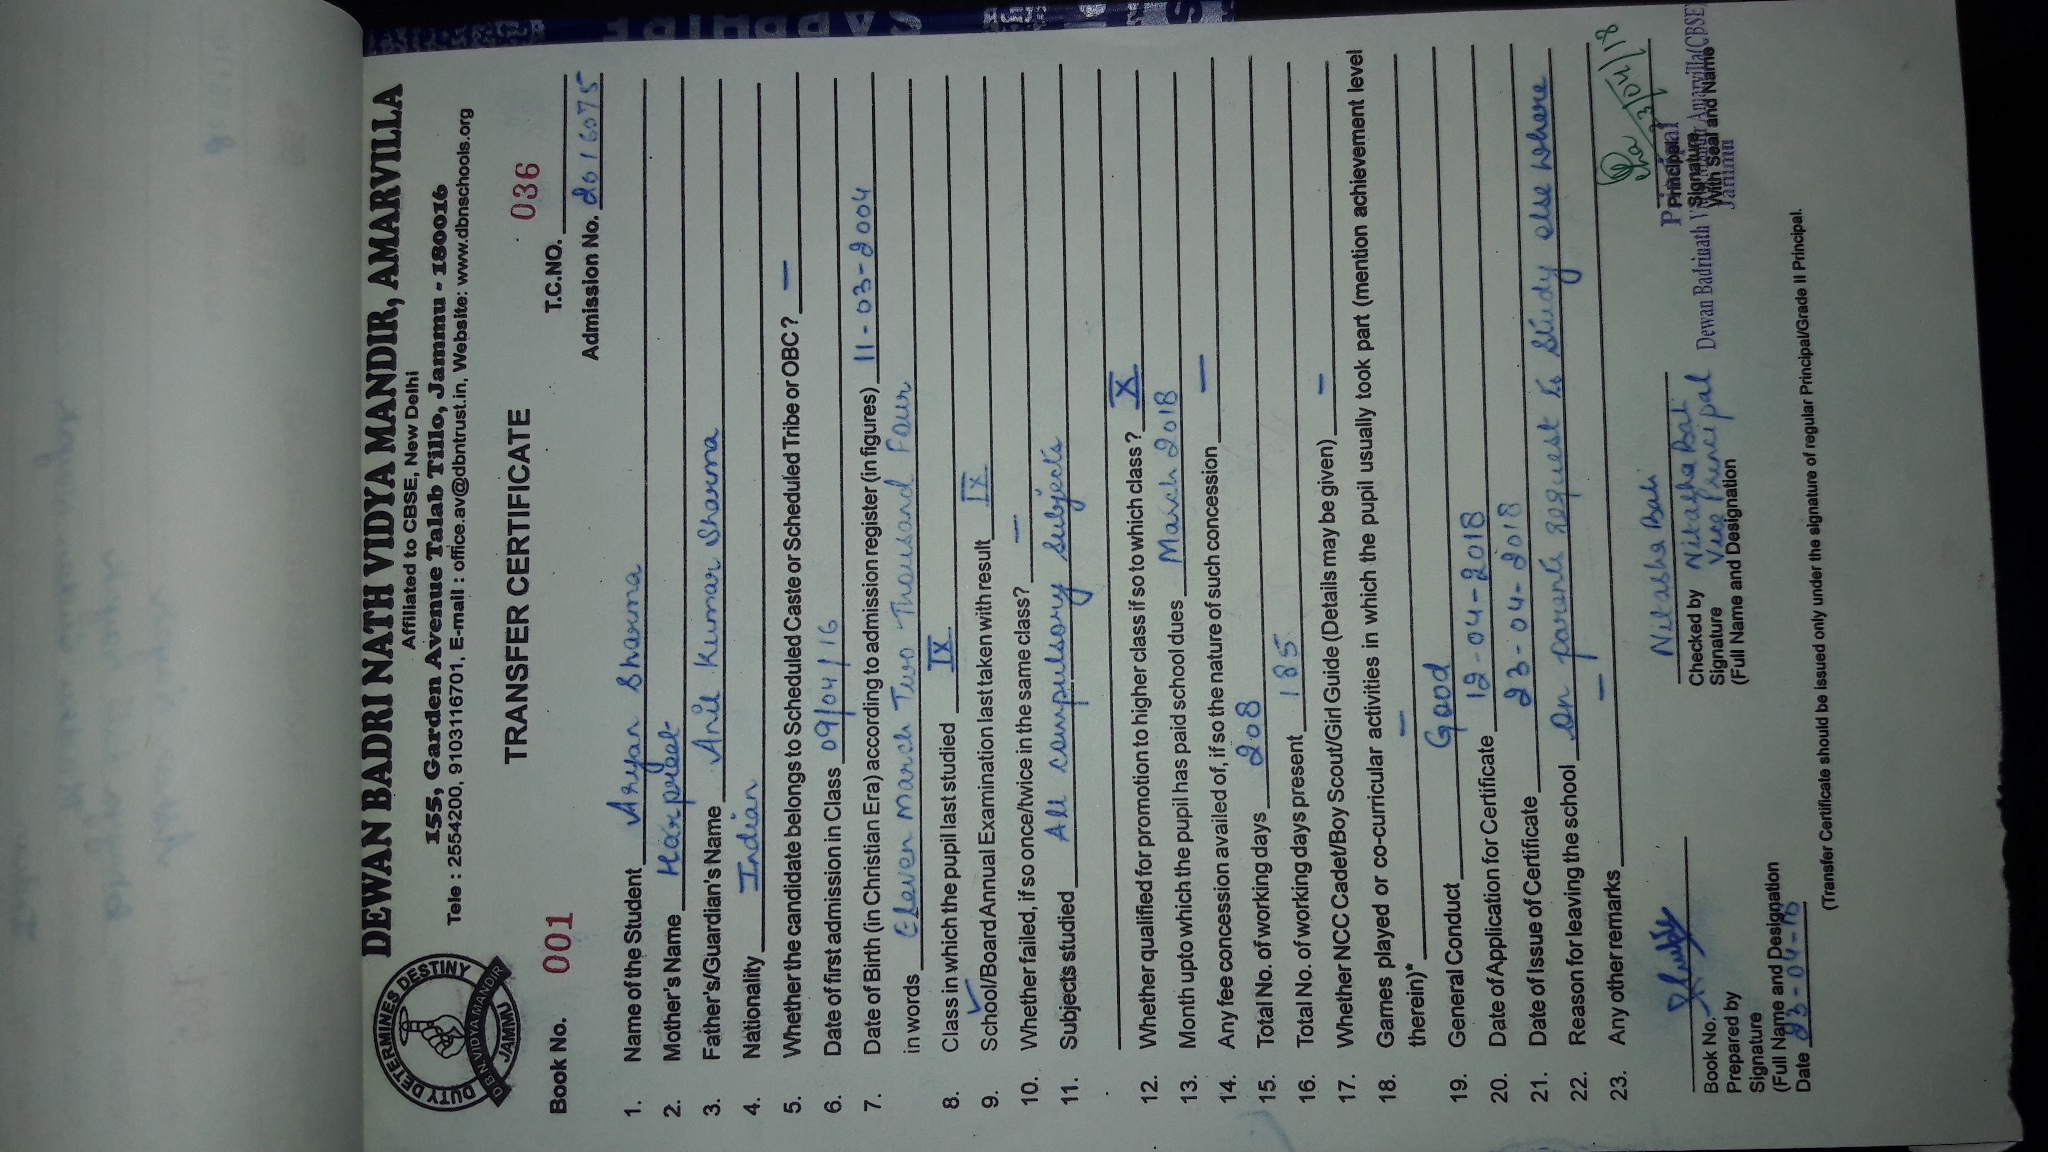 DEWAN BADRI NATH VIDYA MANDIR, AMARVILLA
Affiliated to CBSE, New Delhi
155, Garden Avenue Talab Tillo, Jammu - 180016
Tele : 2554200, 9103116701, E-mail : office.av@dbntrust.in, Website: www.dbnschools.org
DUTY DETERMINES DESTINY
D B N VIDYA MANDIR
JAMMU
TRANSFER CERTIFICATE
Book No. 001 T.C.NO. 036
Admission No. 2016075
1. Name of the Student Aryan Sharma
2. Mother's Name Harpreet
3. Father's/Guardian's Name Anil Kumar Sharma
4. Nationality Indian
5. Whether the candidate belongs to Scheduled Caste or Scheduled Tribe or OBC? —
6. Date of first admission in Class 09/04/16
7. Date of Birth (in Christian Era) according to admission register (in figures) 11-03-2004
in words Eleven March Two Thousand Four
8. Class in which the pupil last studied IX
9. School/Board Annual Examination last taken with result IX
10. Whether failed, if so once/twice in the same class? —
11. Subjects studied All compulsory subjects
12. Whether qualified for promotion to higher class if so to which class ? X
13. Month upto which the pupil has paid school dues March 2018
14. Any fee concession availed of, if so the nature of such concession —
15. Total No. of working days 208
16. Total No. of working days present 185
17. Whether NCC Cadet/Boy Scout/Girl Guide (Details may be given) —
18. Games played or co-curricular activities in which the pupil usually took part (mention achievement level
therein)* —
19. General Conduct Good
20. Date of Application for Certificate 12-04-2018
21. Date of Issue of Certificate 23-04-2018
22. Reason for leaving the school On parents request to study else where
23. Any other remarks —
23/04/18
Nitasha Bali
Book No. Checked by Nitasha Bali Principal
Prepared by Signature Vice Principal Signature
Signature (Full Name and Designation) With Seal and Name
(Full Name and Designation
Date 23-04-18
Principal
Dewan Badrinath Amarvilla(CBSE)
Jammu
(Transfer Certificate should be issued only under the signature of regular Principal/Grade II Principal.